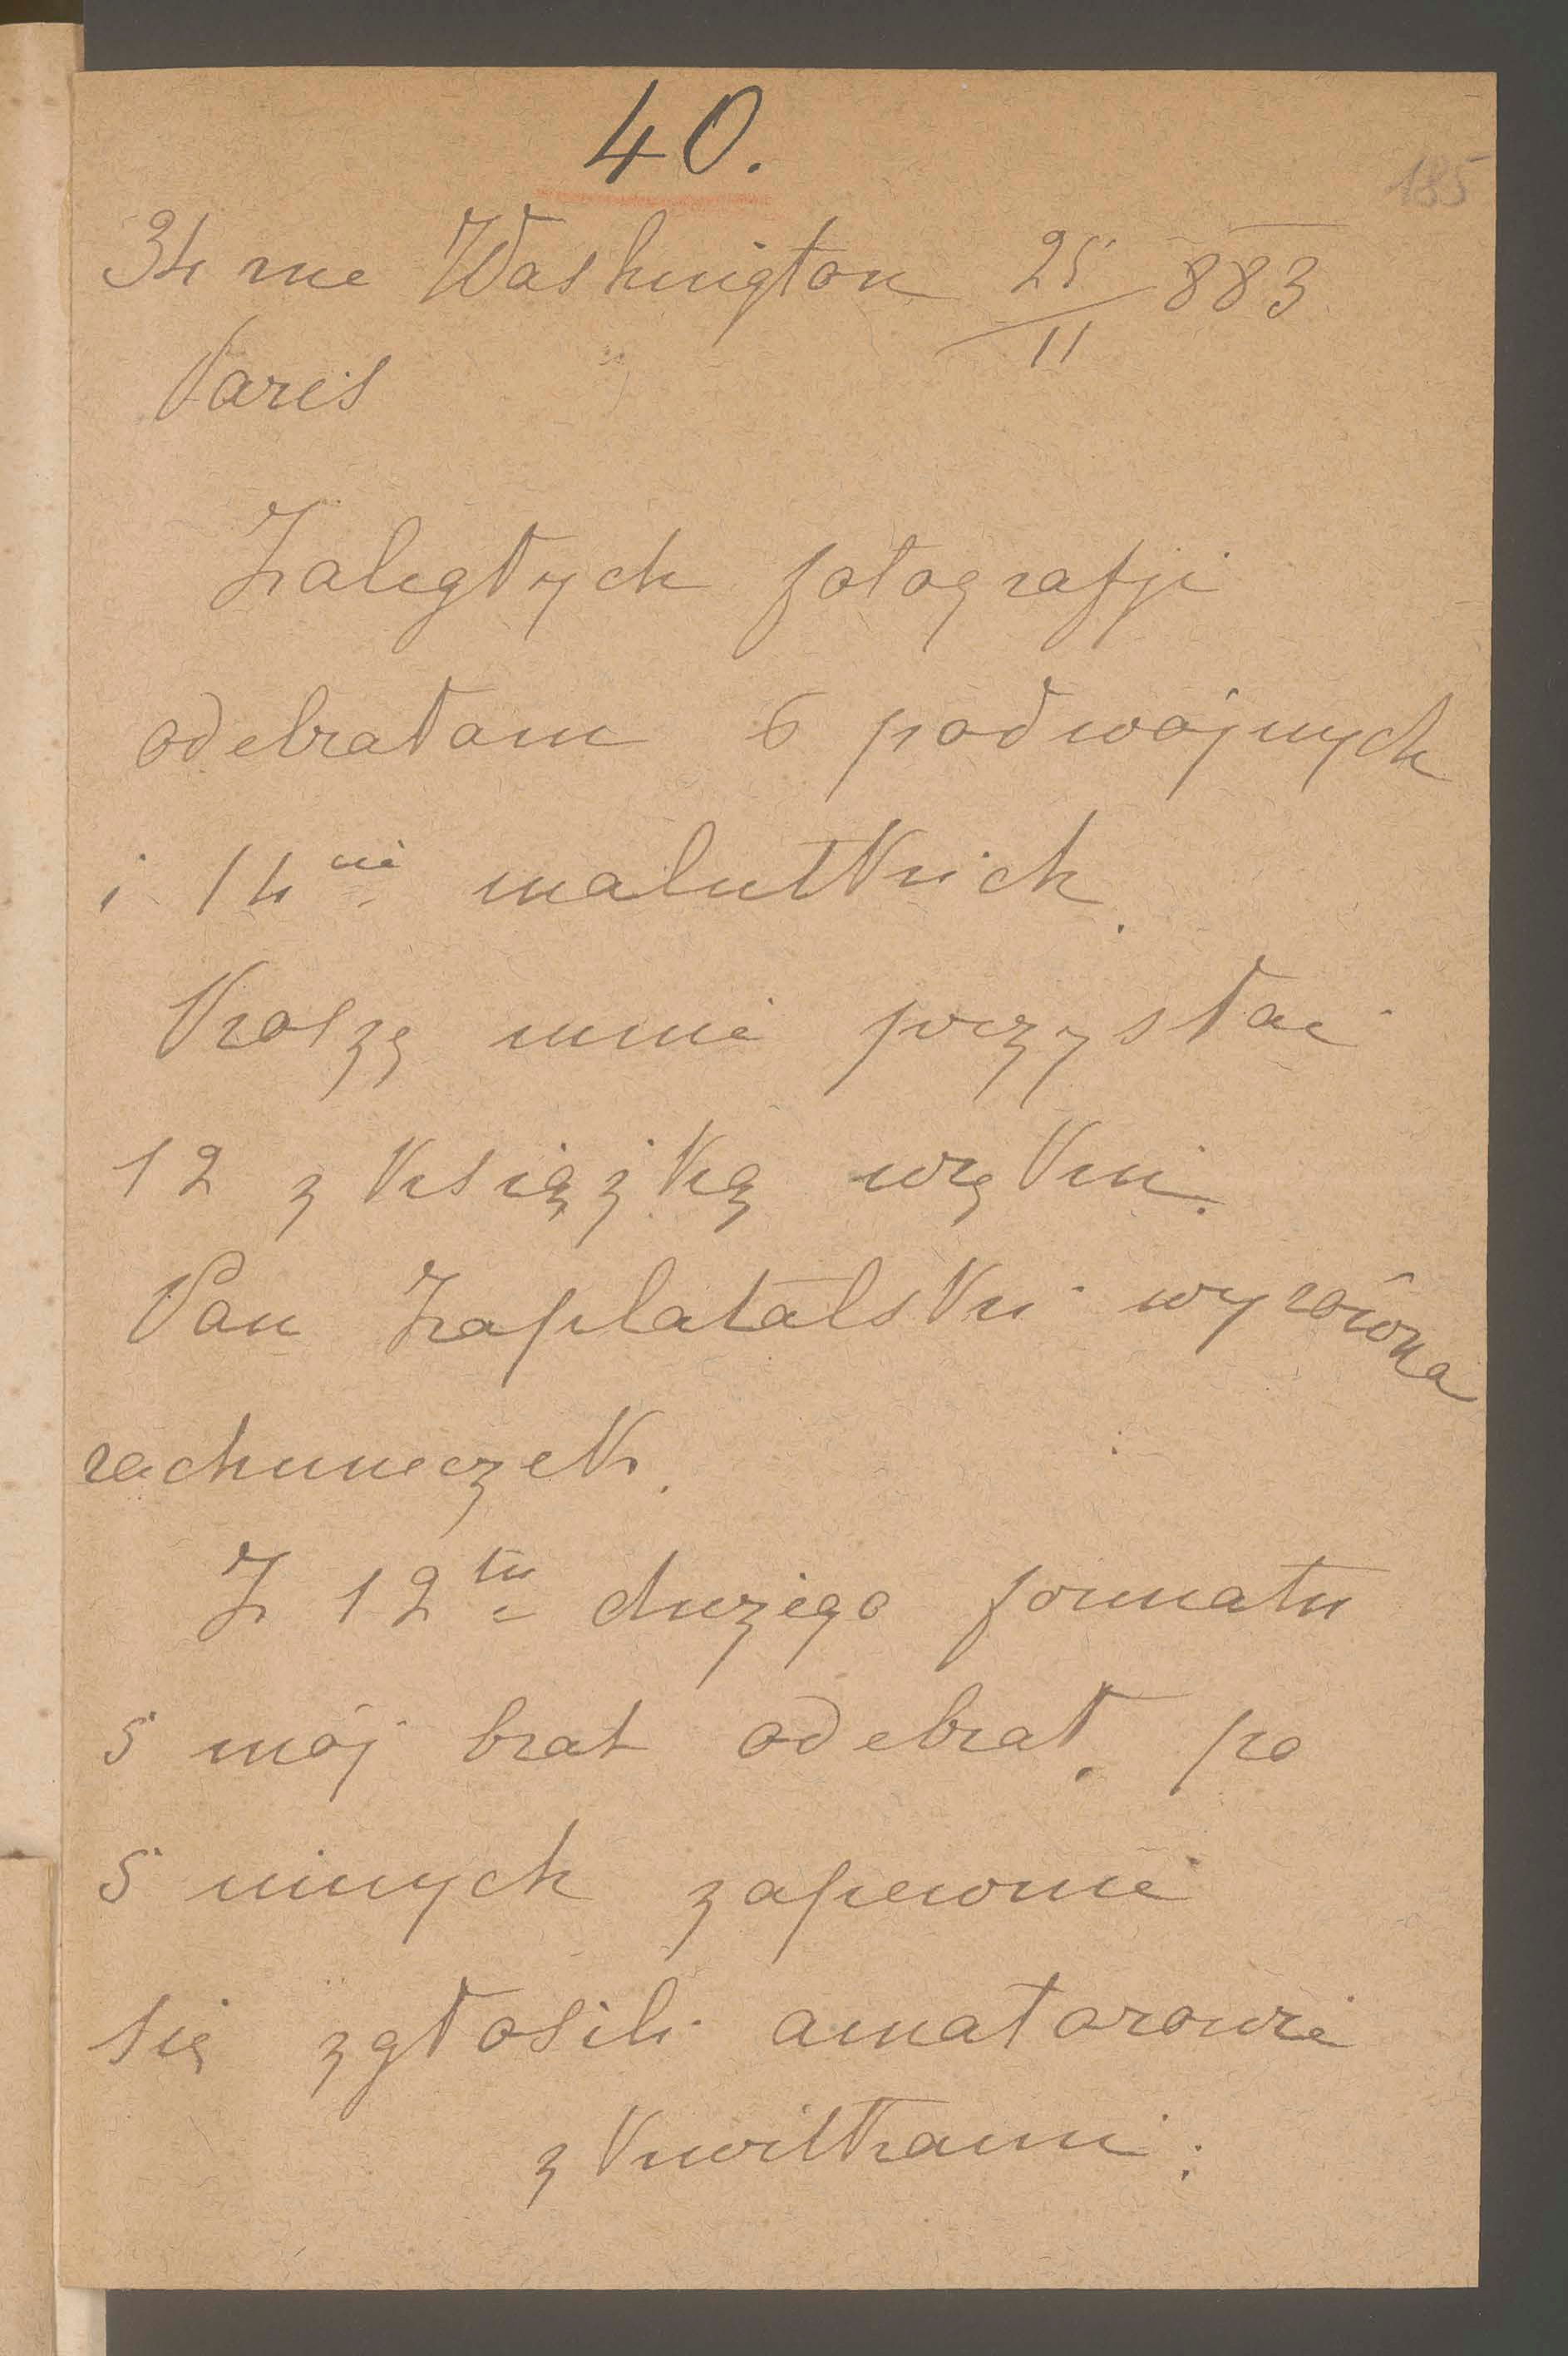 40.
185
34 rue Washington 25/11 883
Paris
Zaległych fotografji
odebrałam 6 podwójnych
i 14nie malutkich.
Proszę mnie przysłać
12 z książką w ręku.
Pan Zaplatalski wyrówna
rachuneczek.
Z 12tu dużego formatu
5 mój brat odebrał, po
5 innych zapewnie
się zgłosili amatorowie
z kwitkami: